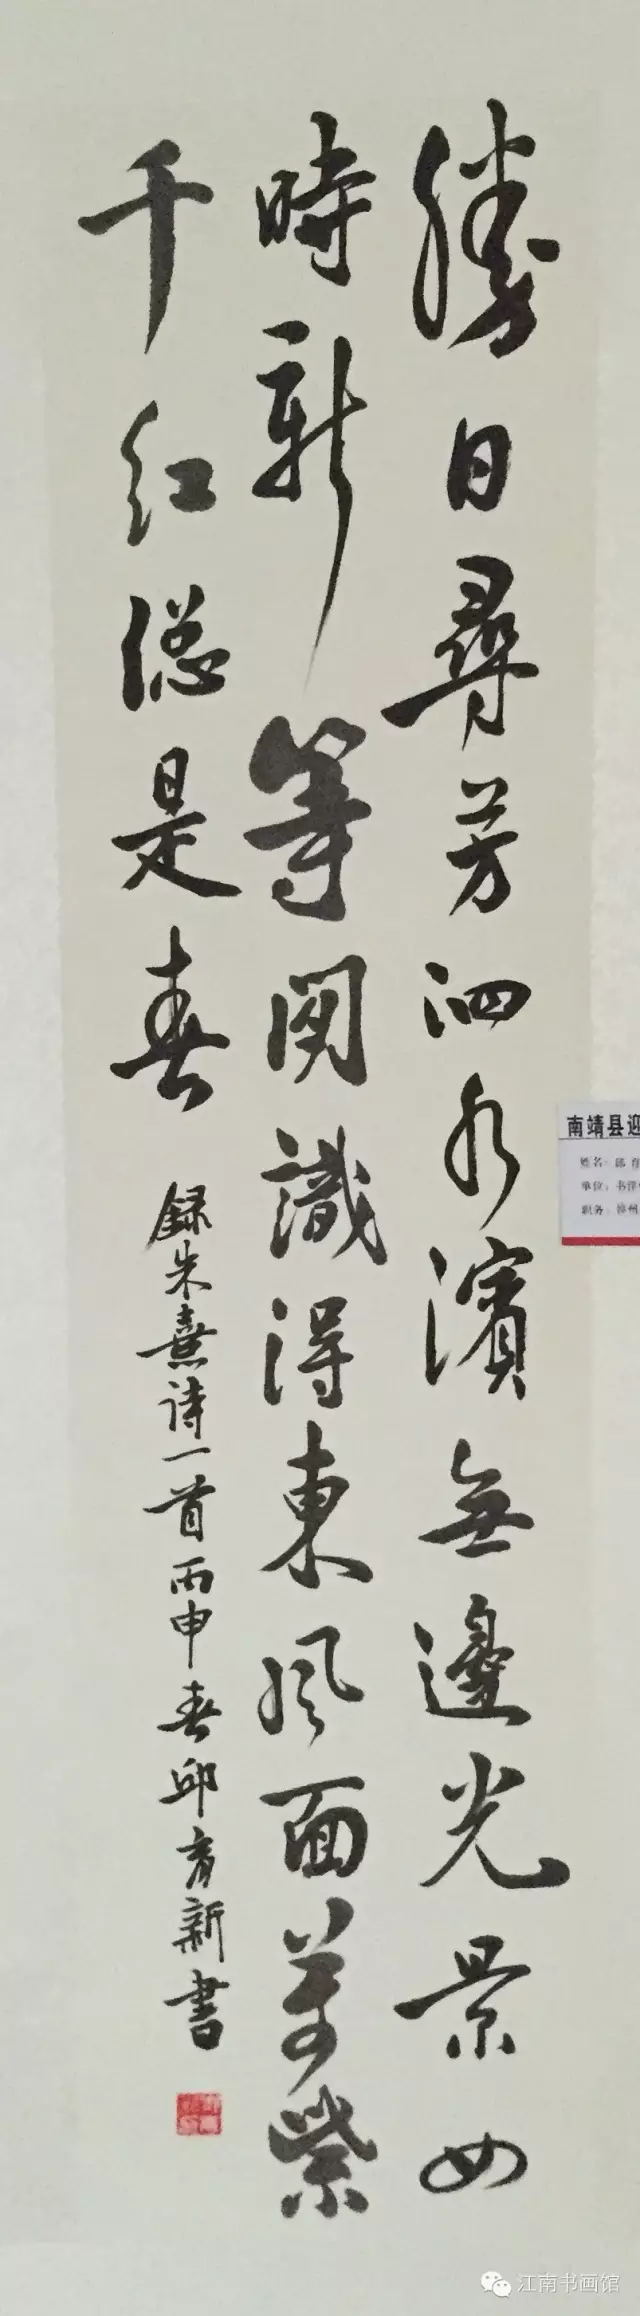 勝日尋芳泗水濱無邊光景如
時新等閑識得東風面萬紫
千红總是春 録朱熹诗一首丙申春邱育新書
南靖县迎
姓名：邱育
单位：书洋
职务：漳州
江南书画馆